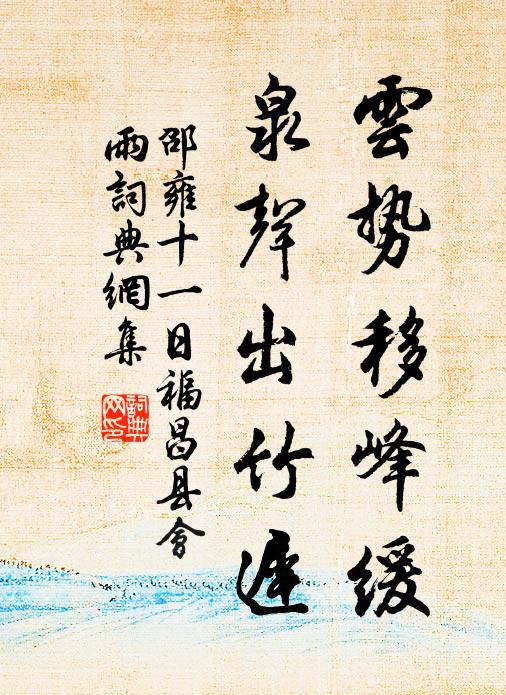 雲勢移峰緩
泉聲出竹遲
邵雍十一日福昌县會
雨詞典網集
詞典
网印